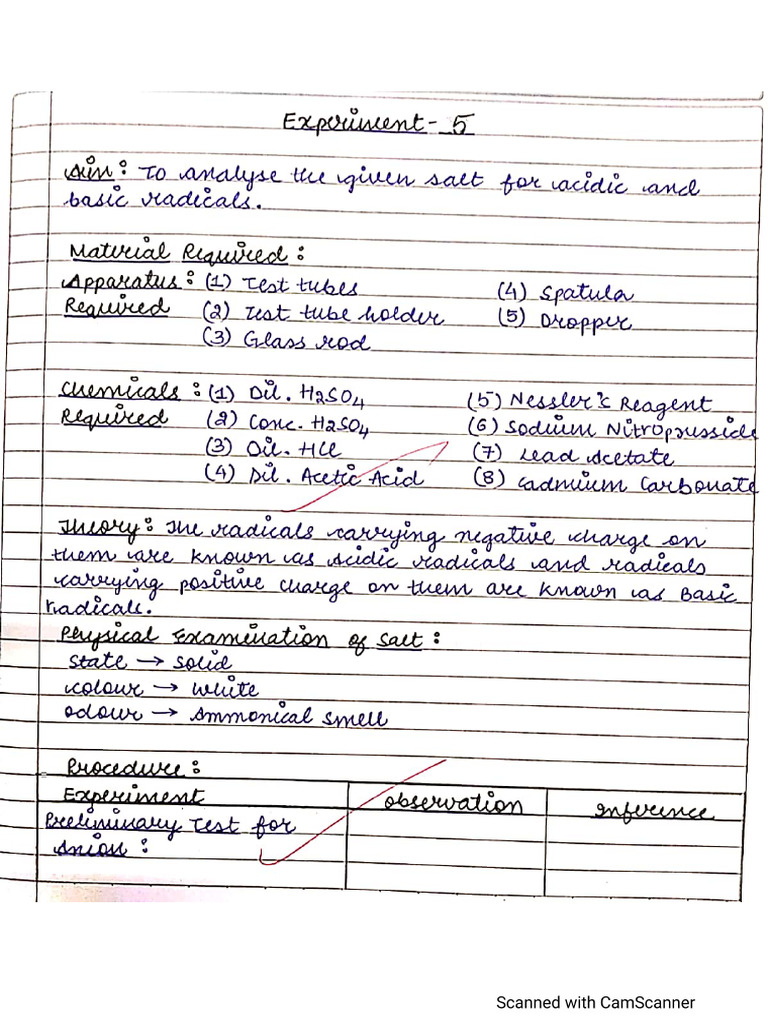 Experiment-5
Aim: To analyse the given salt for acidic and
basic radicals.
Material Required:
Apparatus: (1) Test tubes (4) Spatula
Required (2) Test tube holder (5) Dropper
(3) Glass rod
Chemicals: (1) Dil. H2SO4 (5) Nessler's Reagent
Required (2) Conc. H2SO4 (6) Sodium Nitroprusside
(3) Dil. HCl (7) Lead Acetate
(4) Dil. Acetic Acid (8) Cadmium Carbonate
Theory: The radicals carrying negative charge on
them are known as Acidic radicals and radicals
carrying positive charge on them are known as Basic
radicals.
Physical Examination of Salt:
State → Solid
Colour → White
Odour → Ammonical Smell
Procedure:
Experiment Observation Inference
Preliminary Test for
Anion:
Scanned with CamScanner